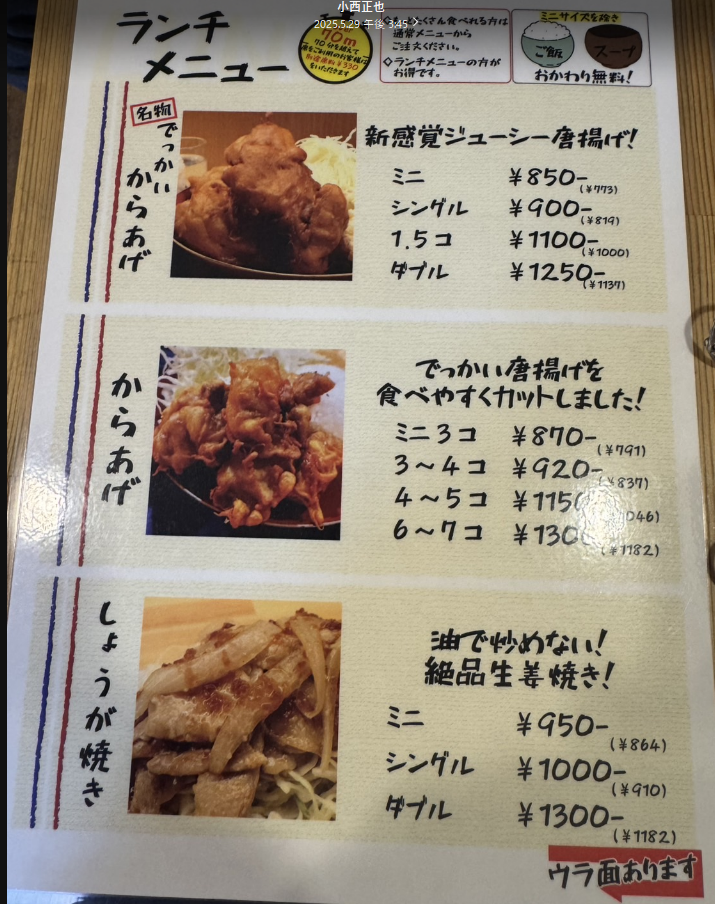 小西正也
2025.5.29 午後 3:45
ランチ
メニュー
70m
70分を超えて
席をご利用のお客様は
別途席料¥330
をいただきます
たくさん食べれる方は
通常メニューから
ご注文ください。
◇ランチメニューの方が
お得です。
ミニサイズを除き
ご飯
スープ
おかわり無料!
名物
でっかい
からあげ
新感覚ジューシー唐揚げ!
ミニ ¥850- (¥773)
シングル ¥900- (¥819)
1.5コ ¥1100- (¥1000)
ダブル ¥1250- (¥1137)
からあげ
でっかい唐揚げを
食べやすくカットしました!
ミニ3コ ¥870- (¥791)
3〜4コ ¥920- (¥837)
4〜5コ ¥1150 046)
6〜7コ ¥1300 (¥1182)
しょうが焼き
油で炒めない!
絶品生姜焼き!
ミニ ¥950- (¥864)
シングル ¥1000- (¥910)
ダブル ¥1300- (¥1182)
ウラ面あります